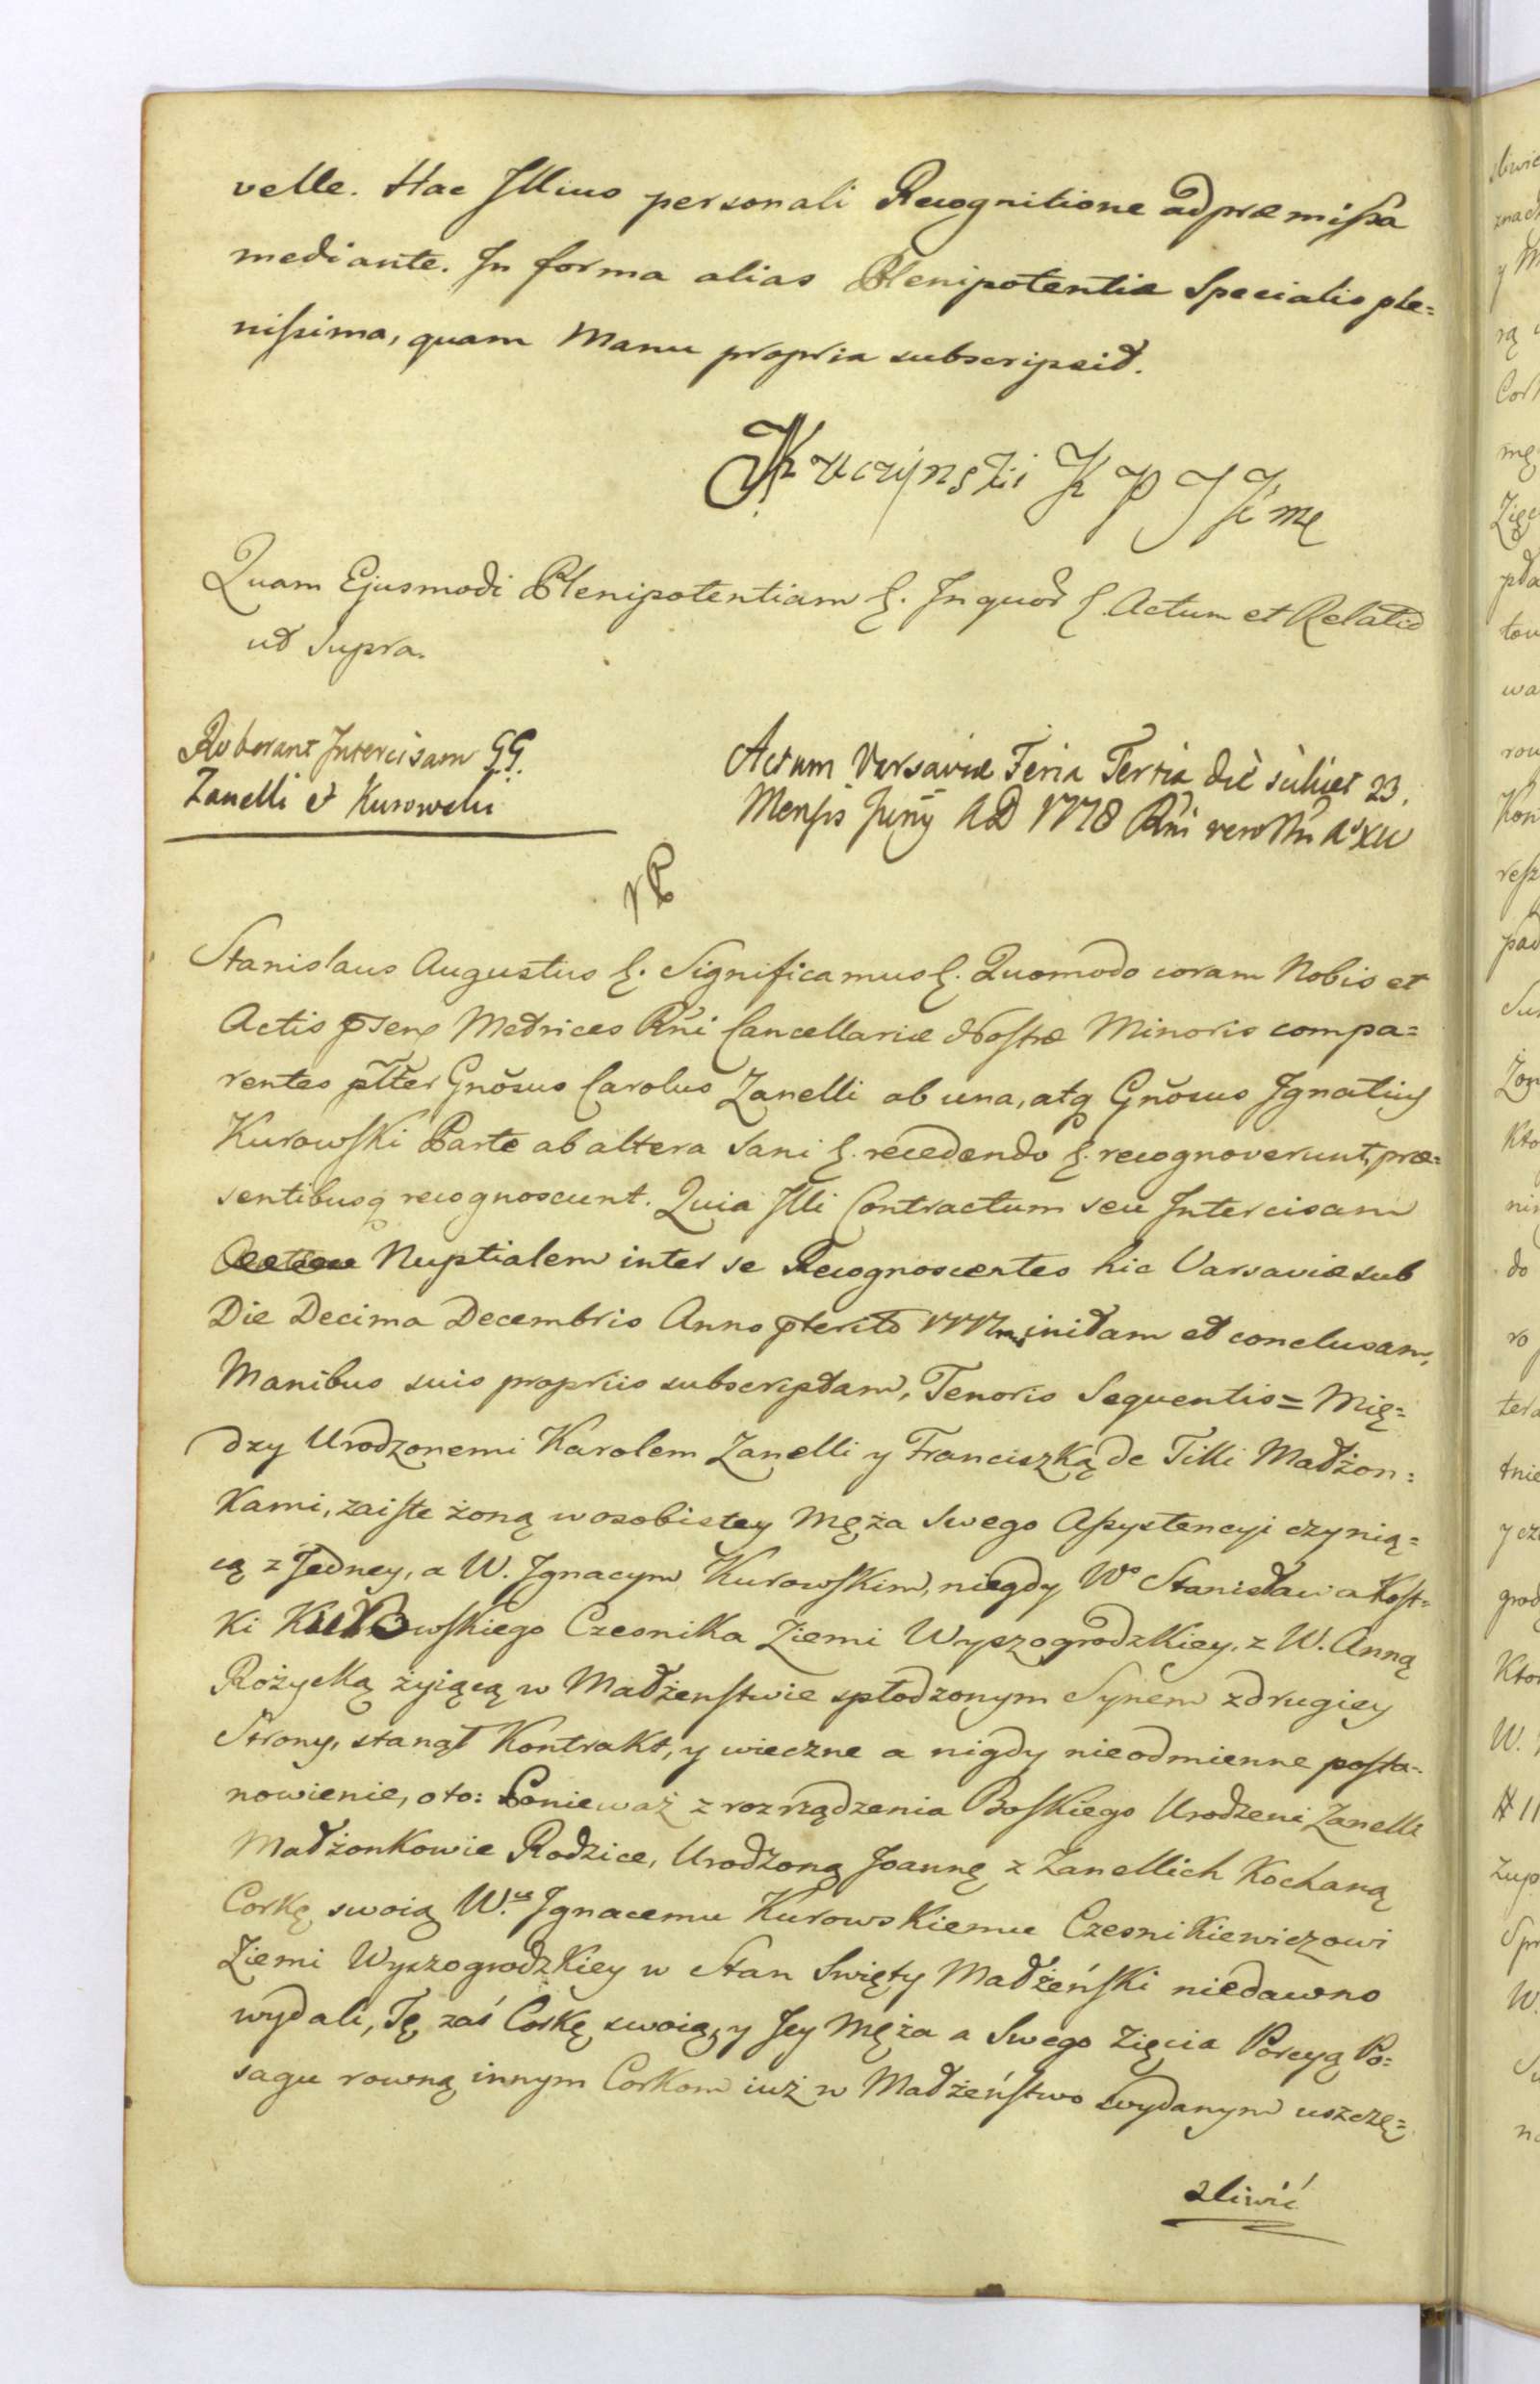 velle. Hac Illius personali Recognitione ad præmissa
mediante. In forma alias Plenipotentiæ Specialis ple=
nissima, quam Manu propria subscripsit.
Kuczynski K P
Quam Ejusmodi Plenipotentiam &. In quod & Actum et Relatio
ut Supra.
Roborant Intercisam GG.
Zanelli et Kurowski
Actum Varsaviæ Feria Tertia die scilicet 23.
Mensis Junÿ AD 1778 Rñi vero Ñri Aº XIV
Stanislaus Augustus &. Significamus &. Quomodo coram Nobis et
Actis Metrices Rñi Cancellariæ Nostræ Minoris compa=
rentes pltter Gnõsus Carolus Zanelli ab una, atq Gnõsus Ignatius
Kurowski Parte ab altera Sani &. recedendo &. recognoverunt, præ=
sentibusq recognoscunt. Quia Illi Contractum seu Intercisam
Nuptialem inter se Recognoscentes hic Varsaviæ sub
Die Decima Decembris Anno pterito 1777mo initam et conclusam,
Manibus suis propriis subscriptam, Tenoris Sequentis = Mię=
dzy Urodzonemi Karolem Zanelli y Franciszką de Tilli Małżon=
kami, zaiste żoną w osobistey Męża Swego Assystencyi czynią=
cą z Jedney, a W. Ignacym Kurowskim, niegdy Wº Stanisława Kost=
ki Kurowskiego Czesnika Ziemi Wyszogrodzkiey, z W. Anną
Rożycką żyiącą w Małżenstwie spłodzonym Synem z drugiey
Strony, stanął Kontrakt, y wieczne a nigdy nieodmienne posta=
nowienie, oto: Ponieważ z rozrządzenia Boskiego Urodzeni Zanelli
Małżonkowie Rodzice, Urodzoną Joannę z Zanellich Kochaną
Corkę swoią W.u Ignacemu Kurowskiemu Czesnikiewiczowi
Ziemi Wyszogrodzkiey w Stan Swięty Małżeński niedawno
wydali, Tę zaś Corkę swoią, y Jey Męża a Swego Zięcia Porcyą Po=
sagu rowną innym Corkom iuż w Małżeństwo wydanym uszczę=
sliwić